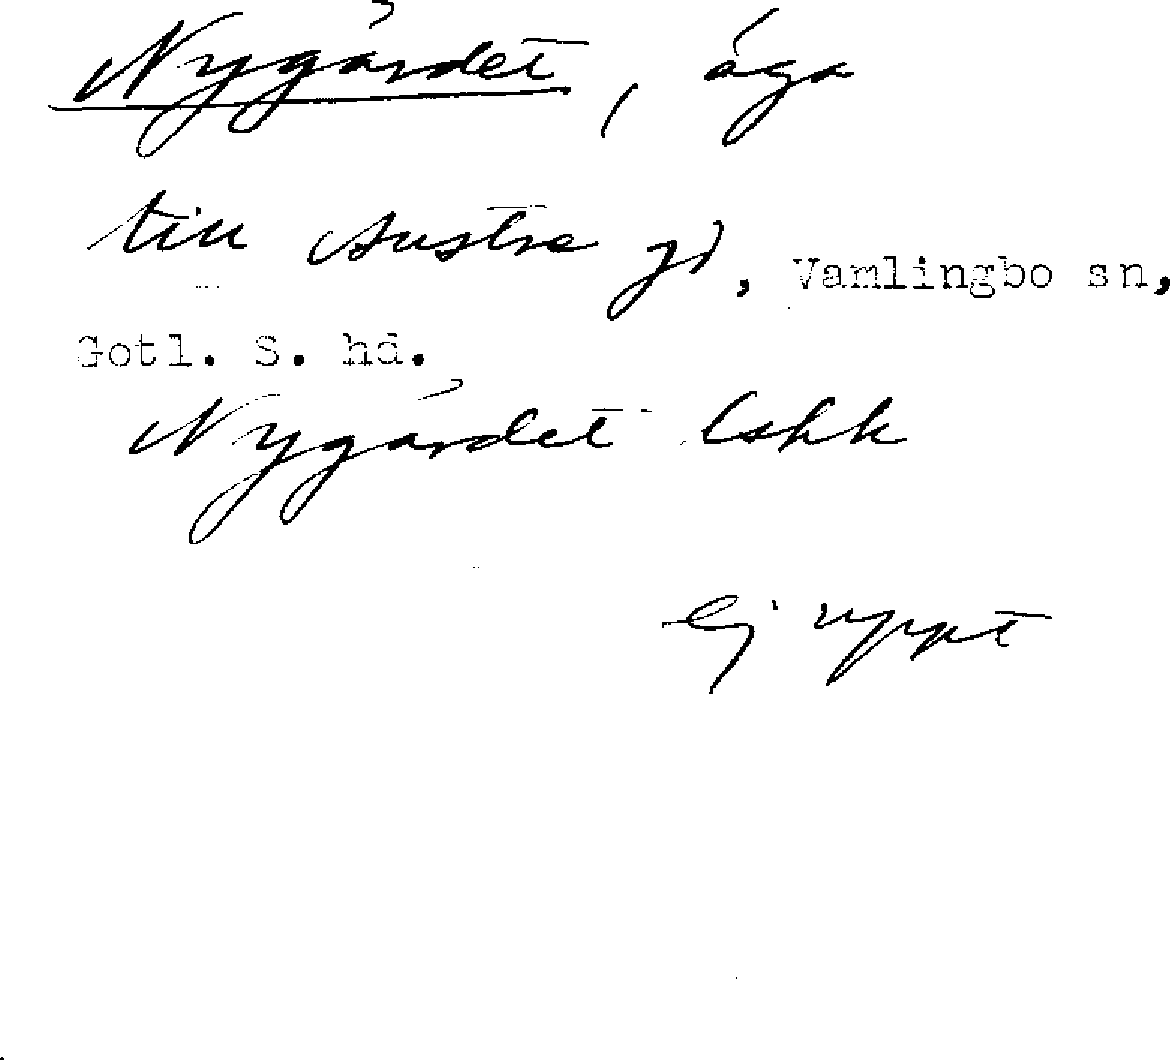 Nygårdet, äga
till Austre gd, Vamlingbo sn,
Gotl. S. hd.
Nygårdet lshk
Ej uppt